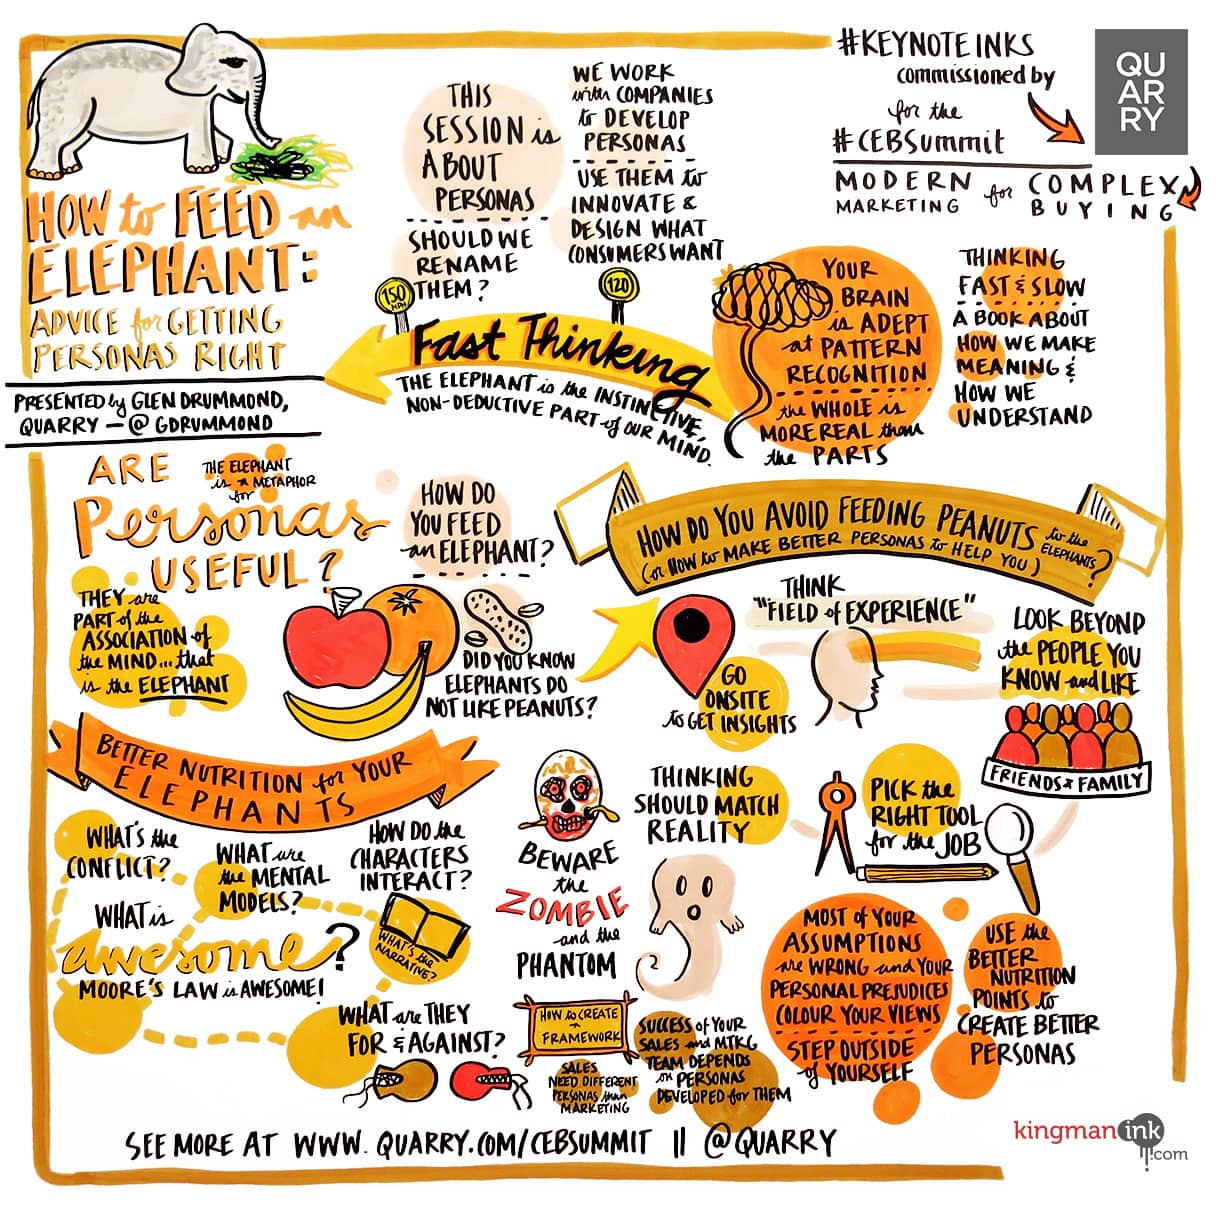 HOW to FEED an
ELEPHANT:
ADVICE for GETTING
PERSONAS RIGHT
PRESENTED by GLEN DRUMMOND,
QUARRY — @GDRUMMOND
THIS
SESSION is
ABOUT
PERSONAS
SHOULD WE
RENAME
THEM?
WE WORK
with COMPANIES
to DEVELOP
PERSONAS
USE THEM to
INNOVATE &
DESIGN WHAT
CONSUMERS WANT
#KEYNOTEINKS
commissioned by
for the
#CEBSummit
QU
AR
RY
MODERN
MARKETING
for
COMPLEX
BUYING
150
MPH
120
Fast Thinking
THE ELEPHANT is the INSTINCTIVE,
NON-DEDUCTIVE PART of OUR MIND.
YOUR
BRAIN
is ADEPT
at PATTERN
RECOGNITION
the WHOLE is
MORE REAL than
the PARTS
THINKING
FAST & SLOW
A BOOK ABOUT
HOW WE MAKE
MEANING &
HOW WE
UNDERSTAND
ARE
Personas
USEFUL?
THE ELEPHANT
is a METAPHOR
for
THEY are
PART of the
ASSOCIATION of
the MIND... that
is the ELEPHANT
HOW DO
YOU FEED
an ELEPHANT?
DID YOU KNOW
ELEPHANTS DO
NOT LIKE PEANUTS?
HOW DO YOU AVOID FEEDING PEANUTS to the ELEPHANTS?
(or HOW to MAKE BETTER PERSONAS to HELP YOU)
GO
ONSITE
to GET INSIGHTS
THINK
"FIELD of EXPERIENCE"
LOOK BEYOND
the PEOPLE YOU
KNOW and LIKE
FRIENDS & FAMILY
BETTER NUTRITION for YOUR
ELEPHANTS
WHAT'S the
CONFLICT?
WHAT are
the MENTAL
MODELS?
HOW DO the
CHARACTERS
INTERACT?
WHAT is
awesome?
MOORE'S LAW is AWESOME!
WHAT'S the
NARRATIVE?
WHAT are THEY
FOR & AGAINST?
BEWARE
the
ZOMBIE
and the
PHANTOM
THINKING
SHOULD MATCH
REALITY
PICK the
RIGHT TOOL
for the JOB
HOW to CREATE
a
FRAMEWORK
SALES
NEED DIFFERENT
PERSONAS than
MARKETING
SUCCESS of YOUR
SALES and MTKG
TEAM DEPENDS
on PERSONAS
DEVELOPED for THEM
MOST of YOUR
ASSUMPTIONS
are WRONG and YOUR
PERSONAL PREJUDICES
COLOUR YOUR VIEWS
STEP OUTSIDE
of YOURSELF
USE the
BETTER
NUTRITION
POINTS to
CREATE BETTER
PERSONAS
SEE MORE AT WWW.QUARRY.COM/CEBSUMMIT || @QUARRY
kingmanink
.com